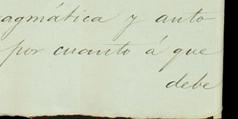 agmática y auto
por cuanto á que
debe